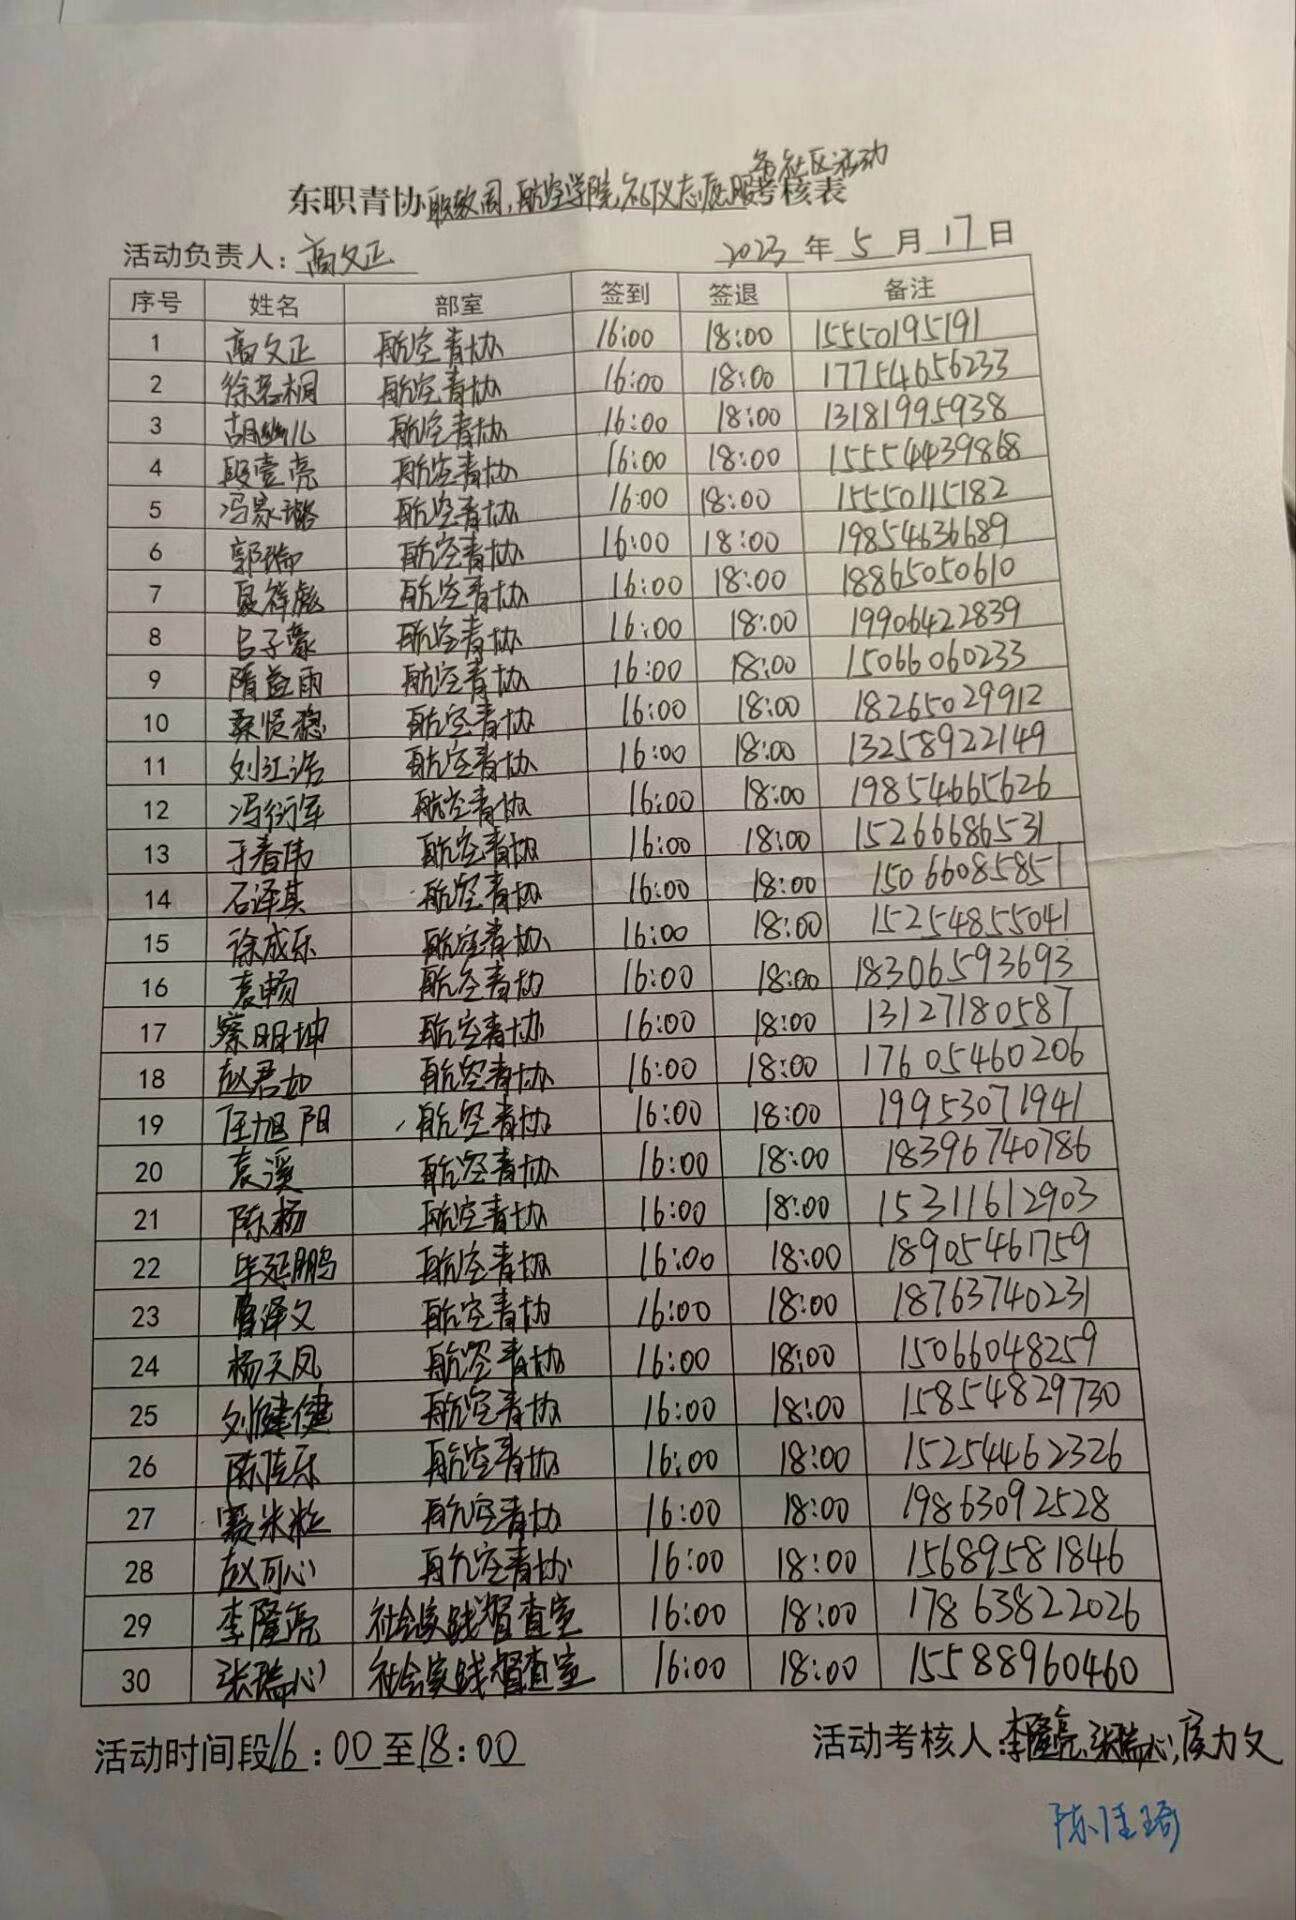 各社区活动
东职青协职教周,航空学院礼仪志愿服考核表
活动负责人:高文正 2023年5月17日
序号 姓名 部室 签到 签退 备注
1 高文正 航空青协 16:00 18:00 15550195191
2 徐若桐 航空青协 16:00 18:00 17754656233
3 胡幽儿 航空青协 16:00 18:00 13181995938
4 段壹亮 航空青协 16:00 18:00 15554439868
5 冯家璐 航空青协 16:00 18:00 15550115182
6 郭瑞 航空青协 16:00 18:00 19854636689
7 航空青协 16:00 18:00 18865050610
8 吕子豪 航空青协 16:00 18:00 19906422839
9 隋益雨 航空青协 16:00 18:00 15066060233
10 桑贤稳 航空青协 16:00 18:00 18265029912
11 刘江浩 航空青协 16:00 18:00 13258922149
12 冯衍军 航空青协 16:00 18:00 19854665626
13 于春伟 航空青协 16:00 18:00 15266686531
14 石泽其 航空青协 16:00 18:00 15066085851
15 徐成乐 航空青协 16:00 18:00 15254855041
16 袁畅 航空青协 16:00 18:00 18306593693
17 蔡明坤 航空青协 16:00 18:00 13127180587
18 赵君如 航空青协 16:00 18:00 17605460206
19 任旭阳 航空青协 16:00 18:00 19953071941
20 袁溪 航空青协 16:00 18:00 18396740786
21 陈杨 航空青协 16:00 18:00 15311612903
22 毕延鹏 航空青协 16:00 18:00 18905461759
23 曹泽文 航空青协 16:00 18:00 18763740231
24 杨天凤 航空青协 16:00 18:00 15066048259
25 刘健健 航空青协 16:00 18:00 15854829730
26 陈佳乐 航空青协 16:00 18:00 15254462326
27 聂米粒 航空青协 16:00 18:00 19863092528
28 赵可心 航空青协 16:00 18:00 15689581846
29 李隆亮 社会实践督查室 16:00 18:00 17863822026
30 张瑞心 社会实践督查室 16:00 18:00 15588960460
活动时间段16:00至18:00 活动考核人:李隆亮,张瑞心,侯力文
陈佳琦